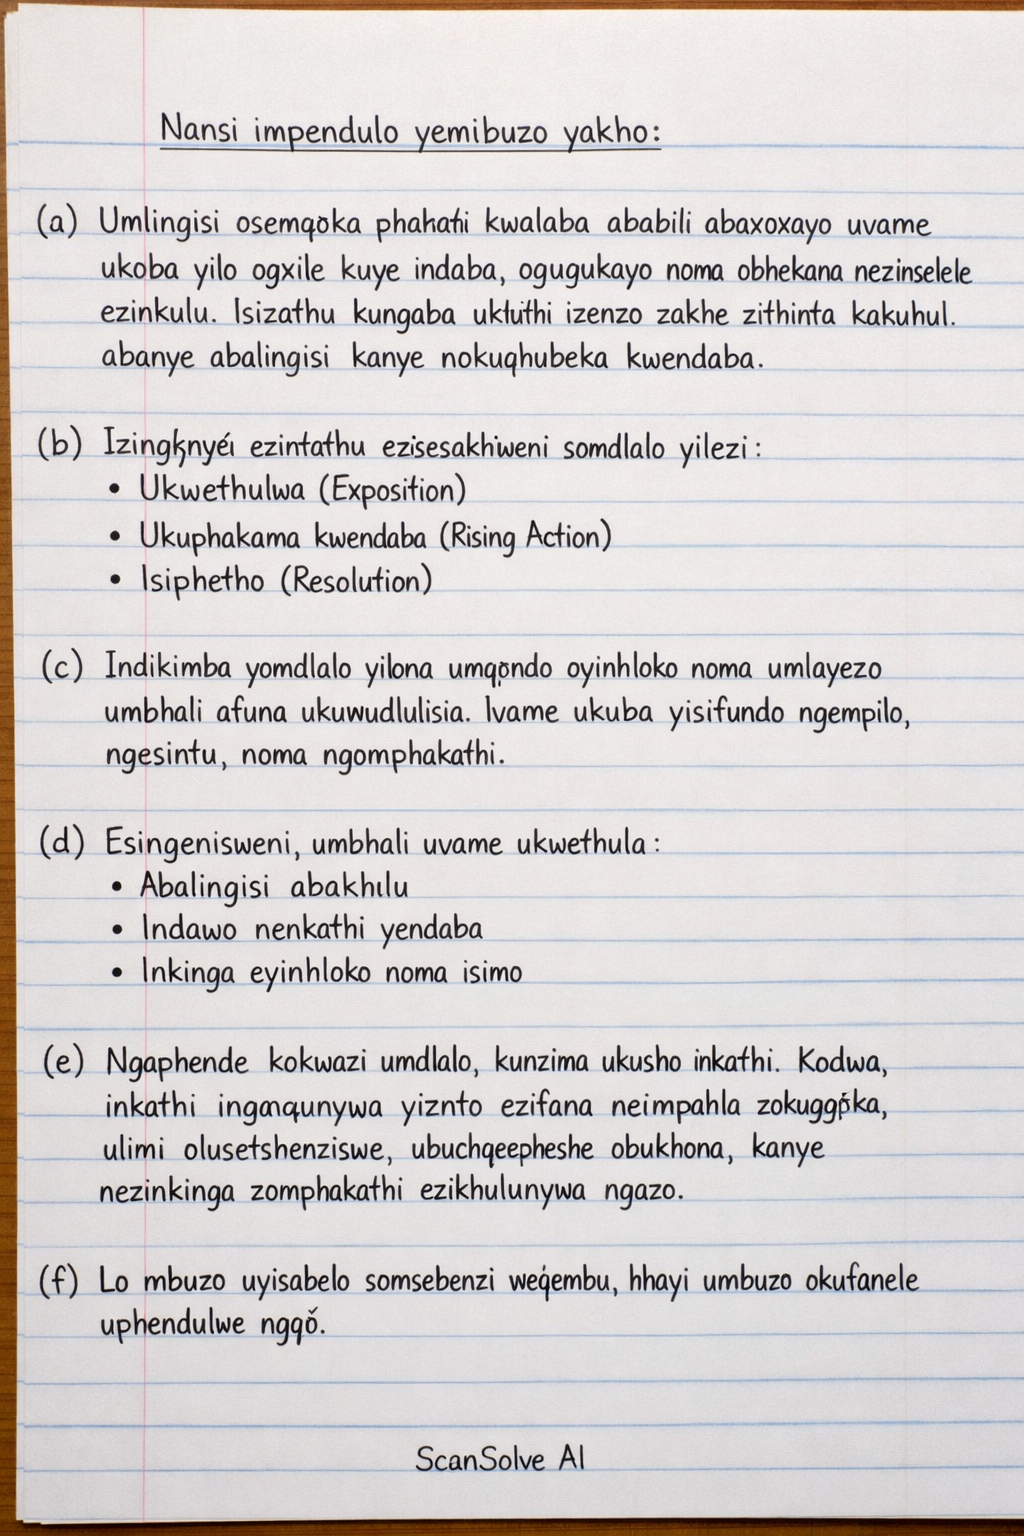 Nansi impendulo yemibuzo yakho:
(a) Umlingisi osemqoka phahathi kwalaba ababili abaxoxayo uvame
ukoba yilo ogxile kuye indaba, ogugukayo noma obhekana nezinselele
ezinkulu. Isizathu kungaba zithinta kakuhul.
abanye abalingisi kanye nokuqhubeka kwendaba.
(b) ezintathu ezisesakhiweni somdlalo yilezi:
• Ukwethulwa (Exposition)
• Ukuphakama kwendaba (Rising Action)
• Isiphetho (Resolution)
(c) Indikimba yomdlalo yilona umqondo oyinhloko noma umlayezo
umbhali afuna ukuwudlulisia. Ivame ukuba yisifundo ngempilo,
ngesintu, noma ngomphakathi.
(d) Esingenisweni, umbhali uvame ukwethula:
• Abalingisi
• Indawo nenkathi yendaba
• Inkinga eyinhloko noma isimo
(e) Ngaphende kokwazi umdlalo, kunzima ukusho inkathi. Kodwa,
inkathi inganqunywa yiznto ezifana neimpahla
ulimi olusetshenziswe, ubuchqeepheshe obukhona, kanye
nezinkinga zomphakathi ezikhulunywa ngazo.
(f) Lo mbuzo uyisabelo somsebenzi weqembu, hhayi umbuzo okufanele
uphendulwe
ScanSolve AI